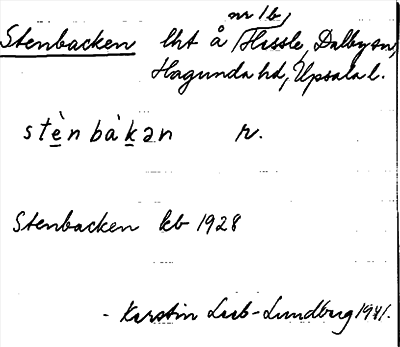 nr 1b,
Stenbacken lht å Hissle, Dalby sn,
Hagunda hd, Upsala l.
stè̱nbàḵən r.
Stenbacken kb 1928
- Kerstin Lub-Lundberg 1941.